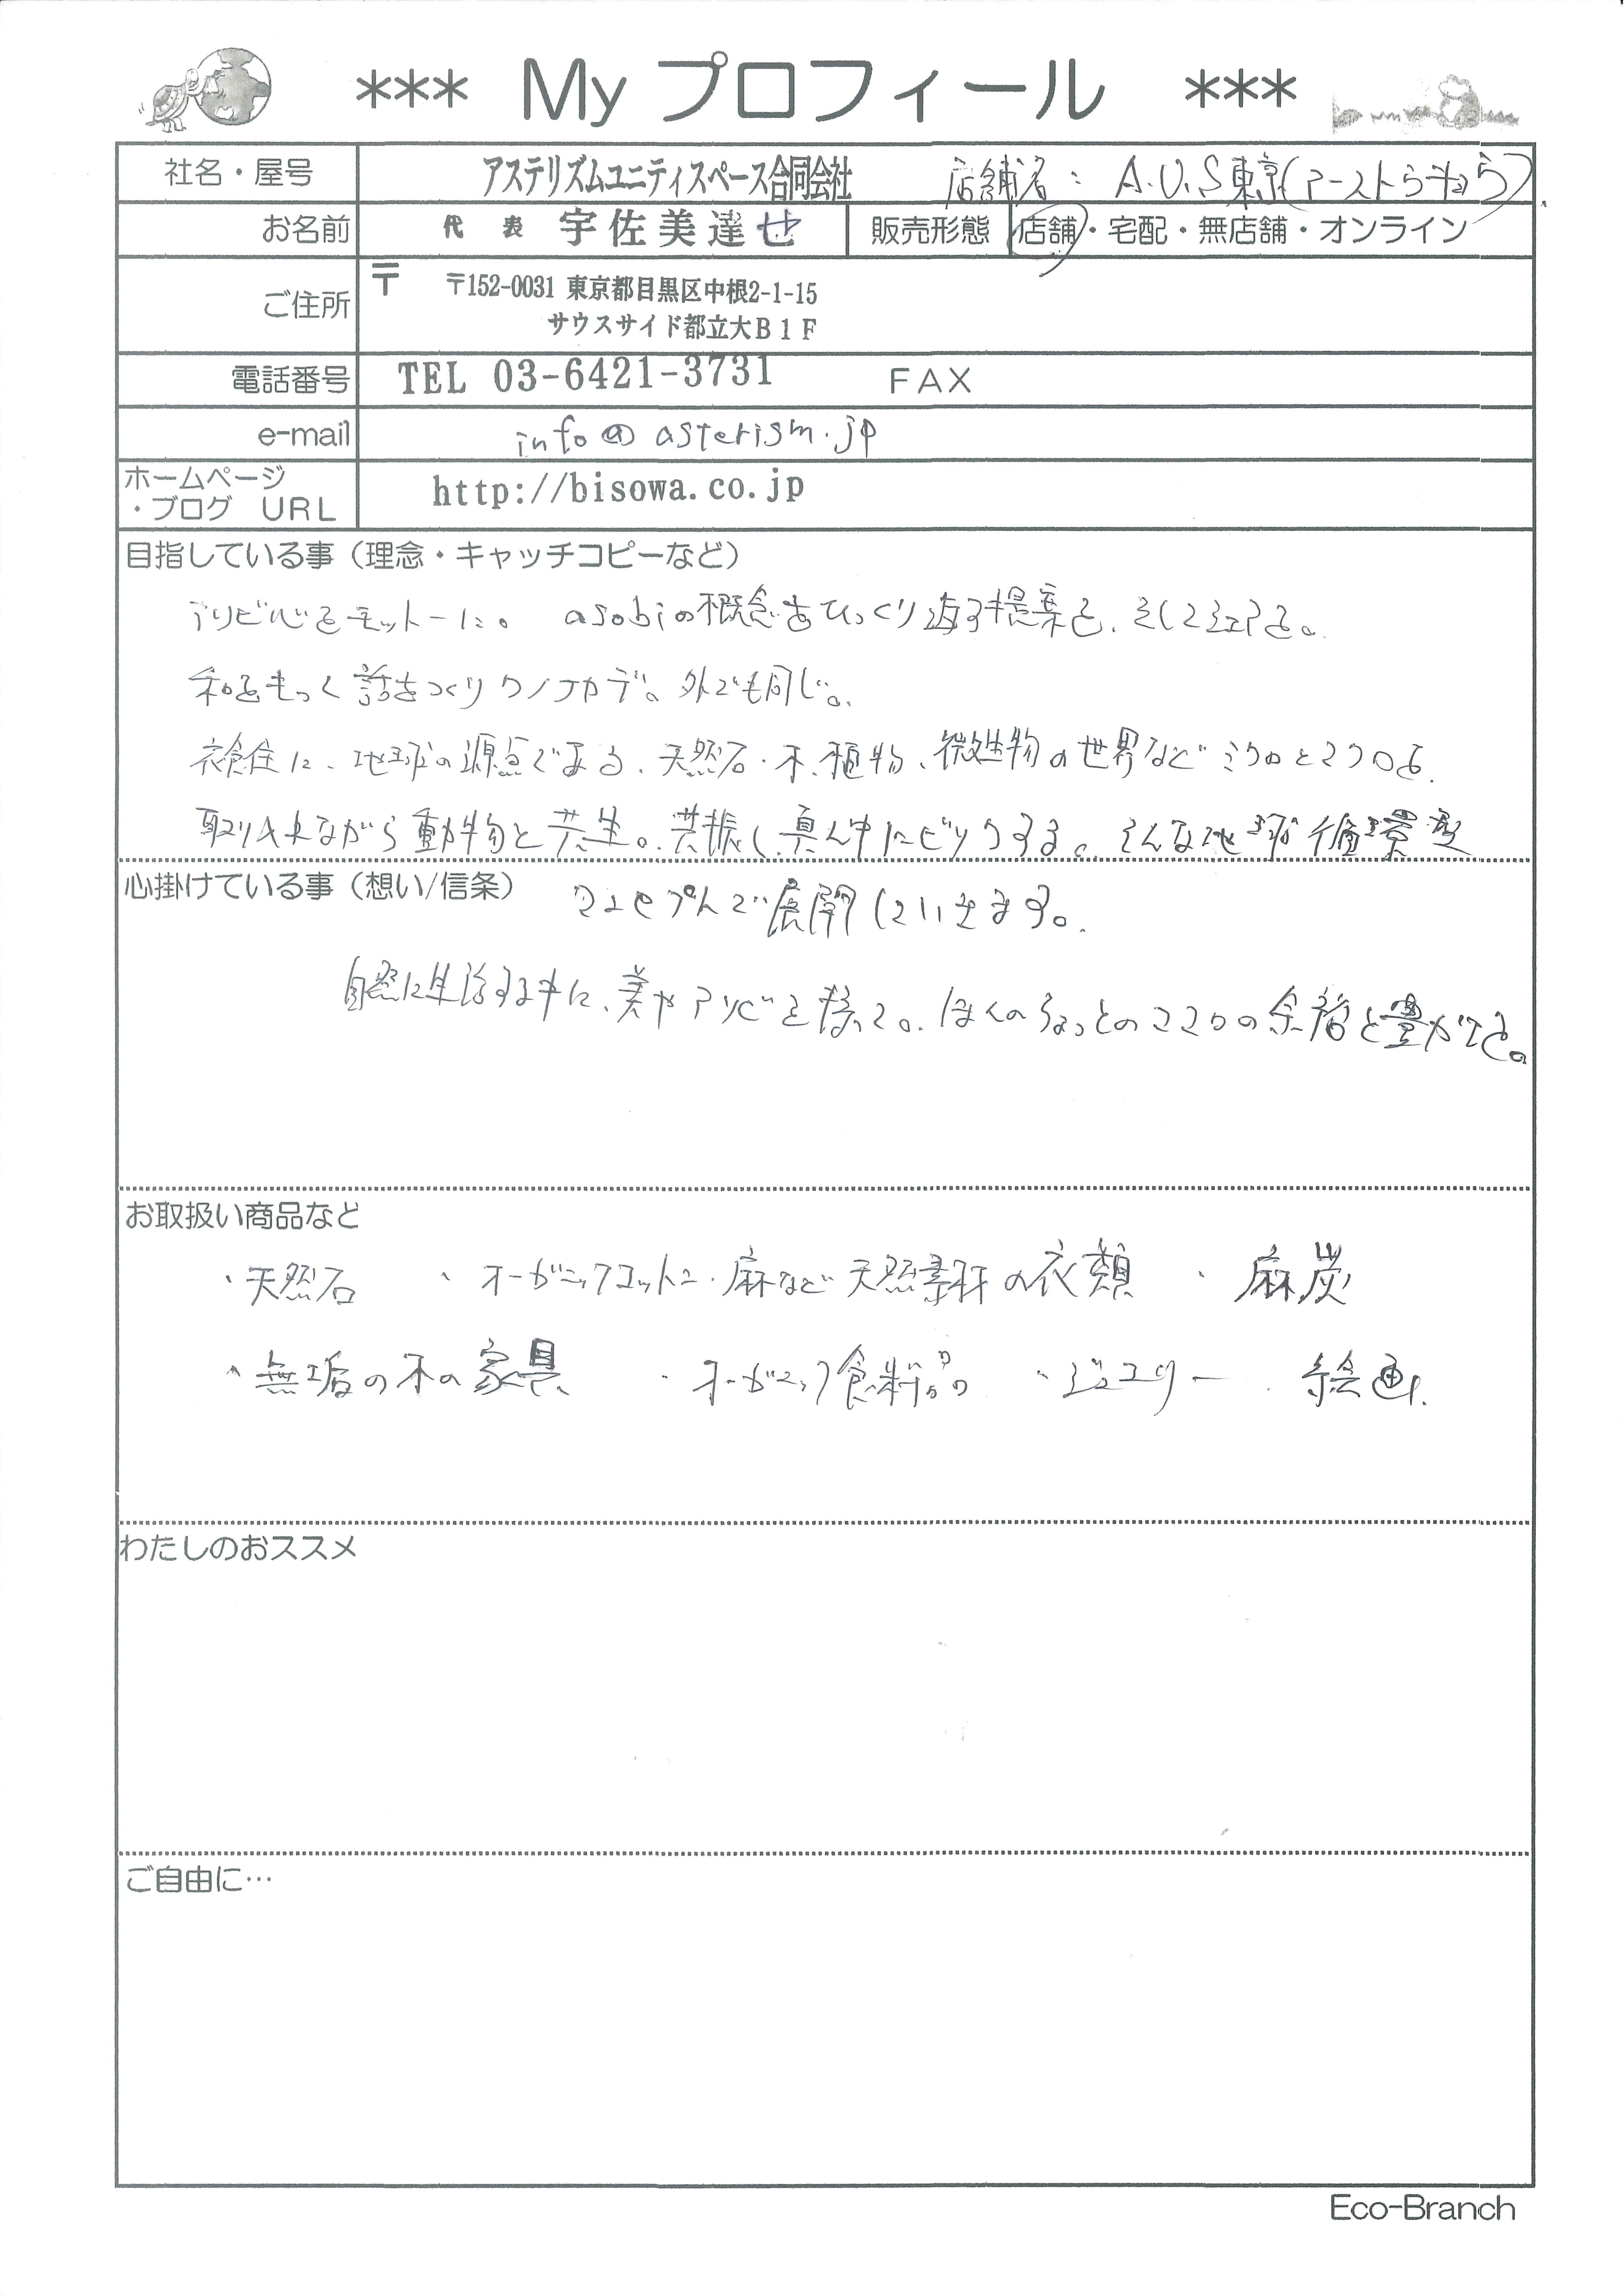 *** My プロフィール ***
社名・屋号 アステリズムユニティスペース合同会社 店舗名：A.U.S東京(アーストウキョウ)
お名前 代表 宇佐美達也 販売形態 店舗・宅配・無店舗・オンライン
ご住所 〒 〒152-0031 東京都目黒区中根2-1-15
サウスサイド都立大B1F
電話番号 TEL 03-6421-3731 FAX
e-mail info@asterism.jp
ホームページ
・ブログ URL http://bisowa.co.jp
目指している事（理念・キャッチコピーなど）
アソビ心をモットーに。 asobiの概念をひっくり返す提案を、そしてシェアを。
和をもって話をつくりワノナカデ。外でも同じ。
衣食住に、地球の源点である、天然石・木、植物、微生物の世界などミクロとマクロを、
取り入れながら動物と共生。共振し真ん中にビックする。そんな地球循環型
心掛けている事（想い/信条）
コンセプトで展開していきます。
自然に生活する中に、美やアソビを持って。ほんのちょっとのココロの余裕と豊かさを。
お取扱い商品など
・天然石 ・オーガニックコットン・麻など天然素材の衣類 ・麻炭
・無垢の木の家具 ・オーガニック食料品 ・ジュエリー ・絵画
わたしのおススメ
ご自由に…
Eco-Branch